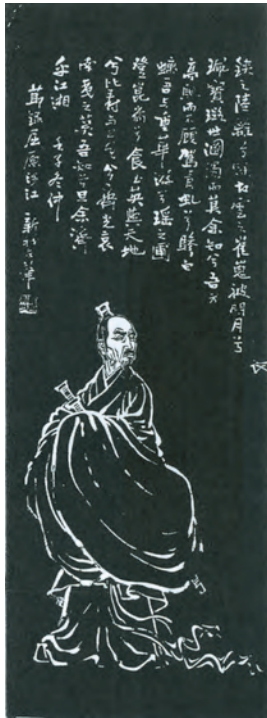 鋏之陸離兮冠切雲之崔嵬被明月兮
珮寶璐世溷濁而莫余知兮吾方
高馳而不顧駕青虬兮驂白
螭吾與重華遊兮瑶之圃
登崑崙兮食玉英與天地
兮比壽與日月兮齊光哀
南夷之莫吾知兮旦余濟
乎江湘 壬子冬仲
節録屈原涉江
长